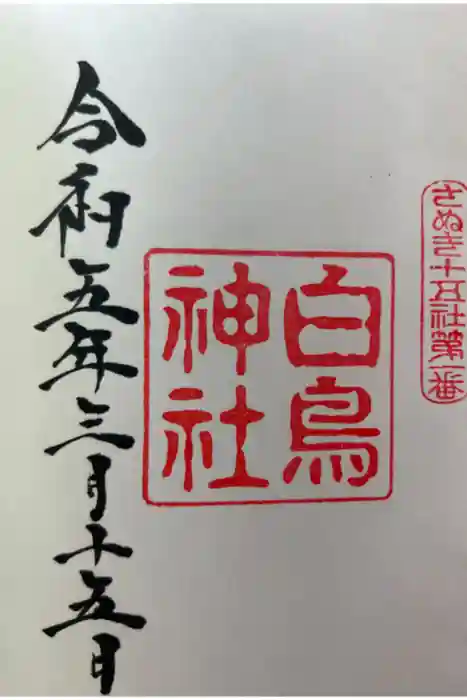 さぬき十五社第一番
白鳥
神社
令和五年三月十五日